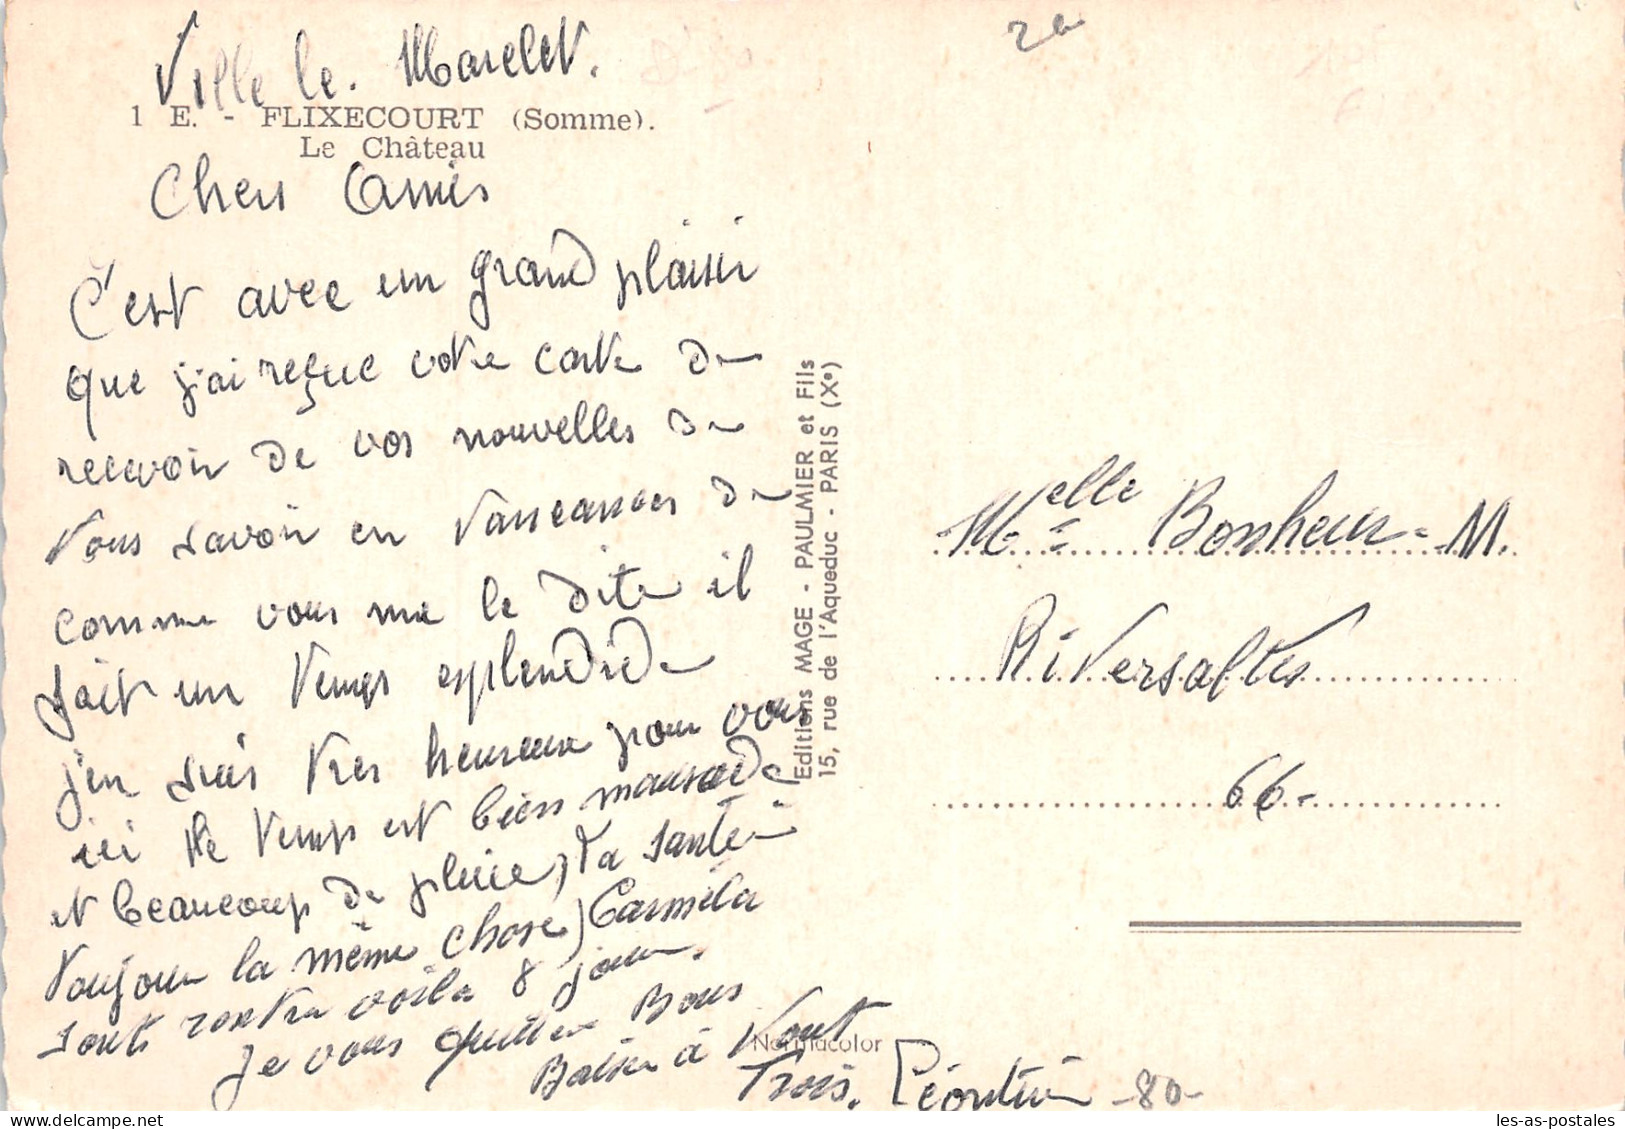 Ville le. Marclet.
1 E. - FLIXECOURT (Somme).
Le Château
Chers Amis
C'est avec un grand plaisir
que j'ai reçue votre carte de
recevoir de vos nouvelles de
vous savoir en vanscanses de
comme vous me le dite il
fait un temps esplendide
j'en suis tres heureuse pour vous
ici le temps est bien mausade
et beaucoup de pluie, ta santé
toujour la même chose) Carmela
sont rentre voila 8 jour.
Je vous quitter Bons
Baiser à tout
Trois.
Editions MAGE - PAULMIER et Fils
15, rue de l'Aqueduc - PARIS (Xe)
Normacolor
Melle Bonheur - M.
RiVersaltes
66-
-80-
les-as-postales